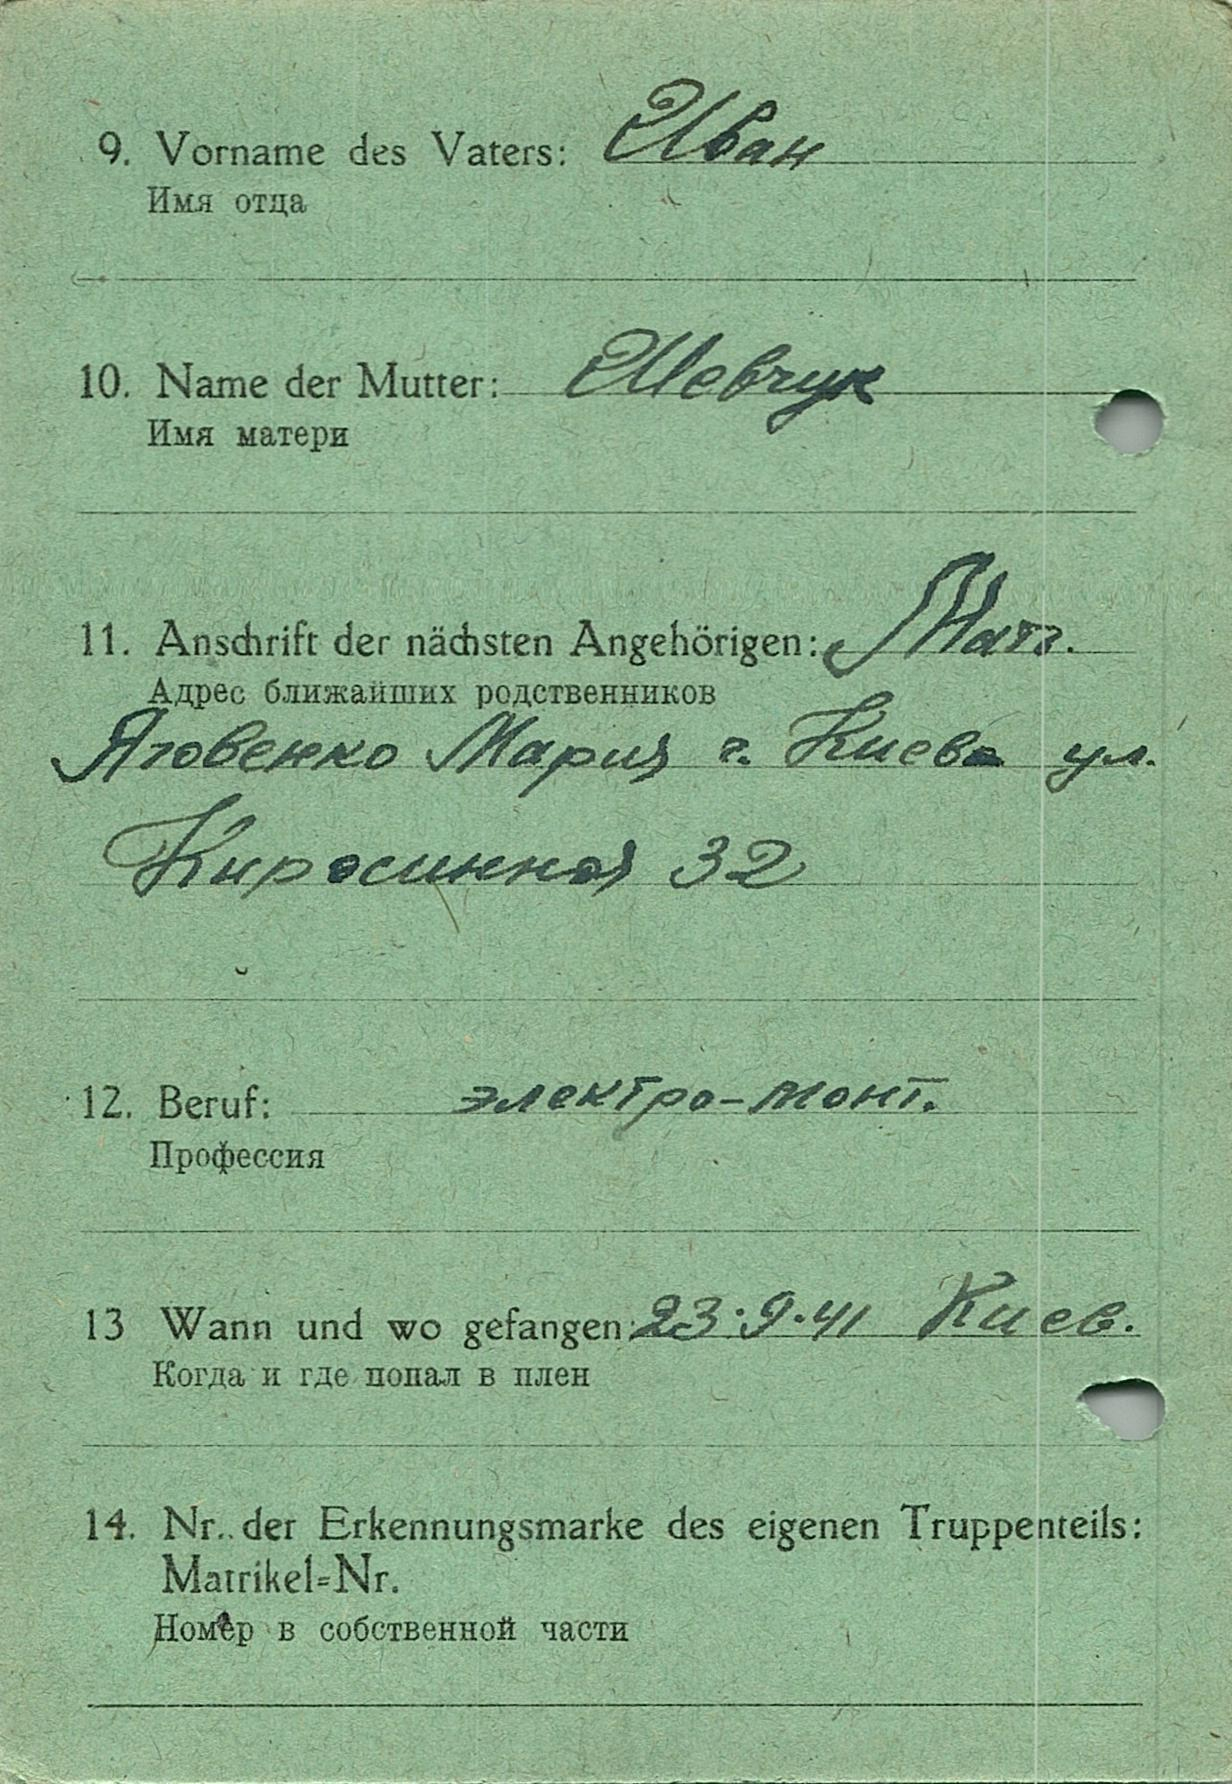 9. Vorname des Vaters: Иван
Имя отца
10. Name der Mutter: Шевчук
Имя матери
11. Anschrift der nächsten Angehörigen: Мать.
Адрес ближайших родственников
Яговенко Мария г. Киев ул.
Киросинная 32
12. Beruf: электро-монт.
Профессия
13 Wann und wo gefangen: 23.9.41 Киев.
Когда и где попал в плен
14. Nr. der Erkennungsmarke des eigenen Truppenteils:
Matrikel=Nr.
Номер в собственной части